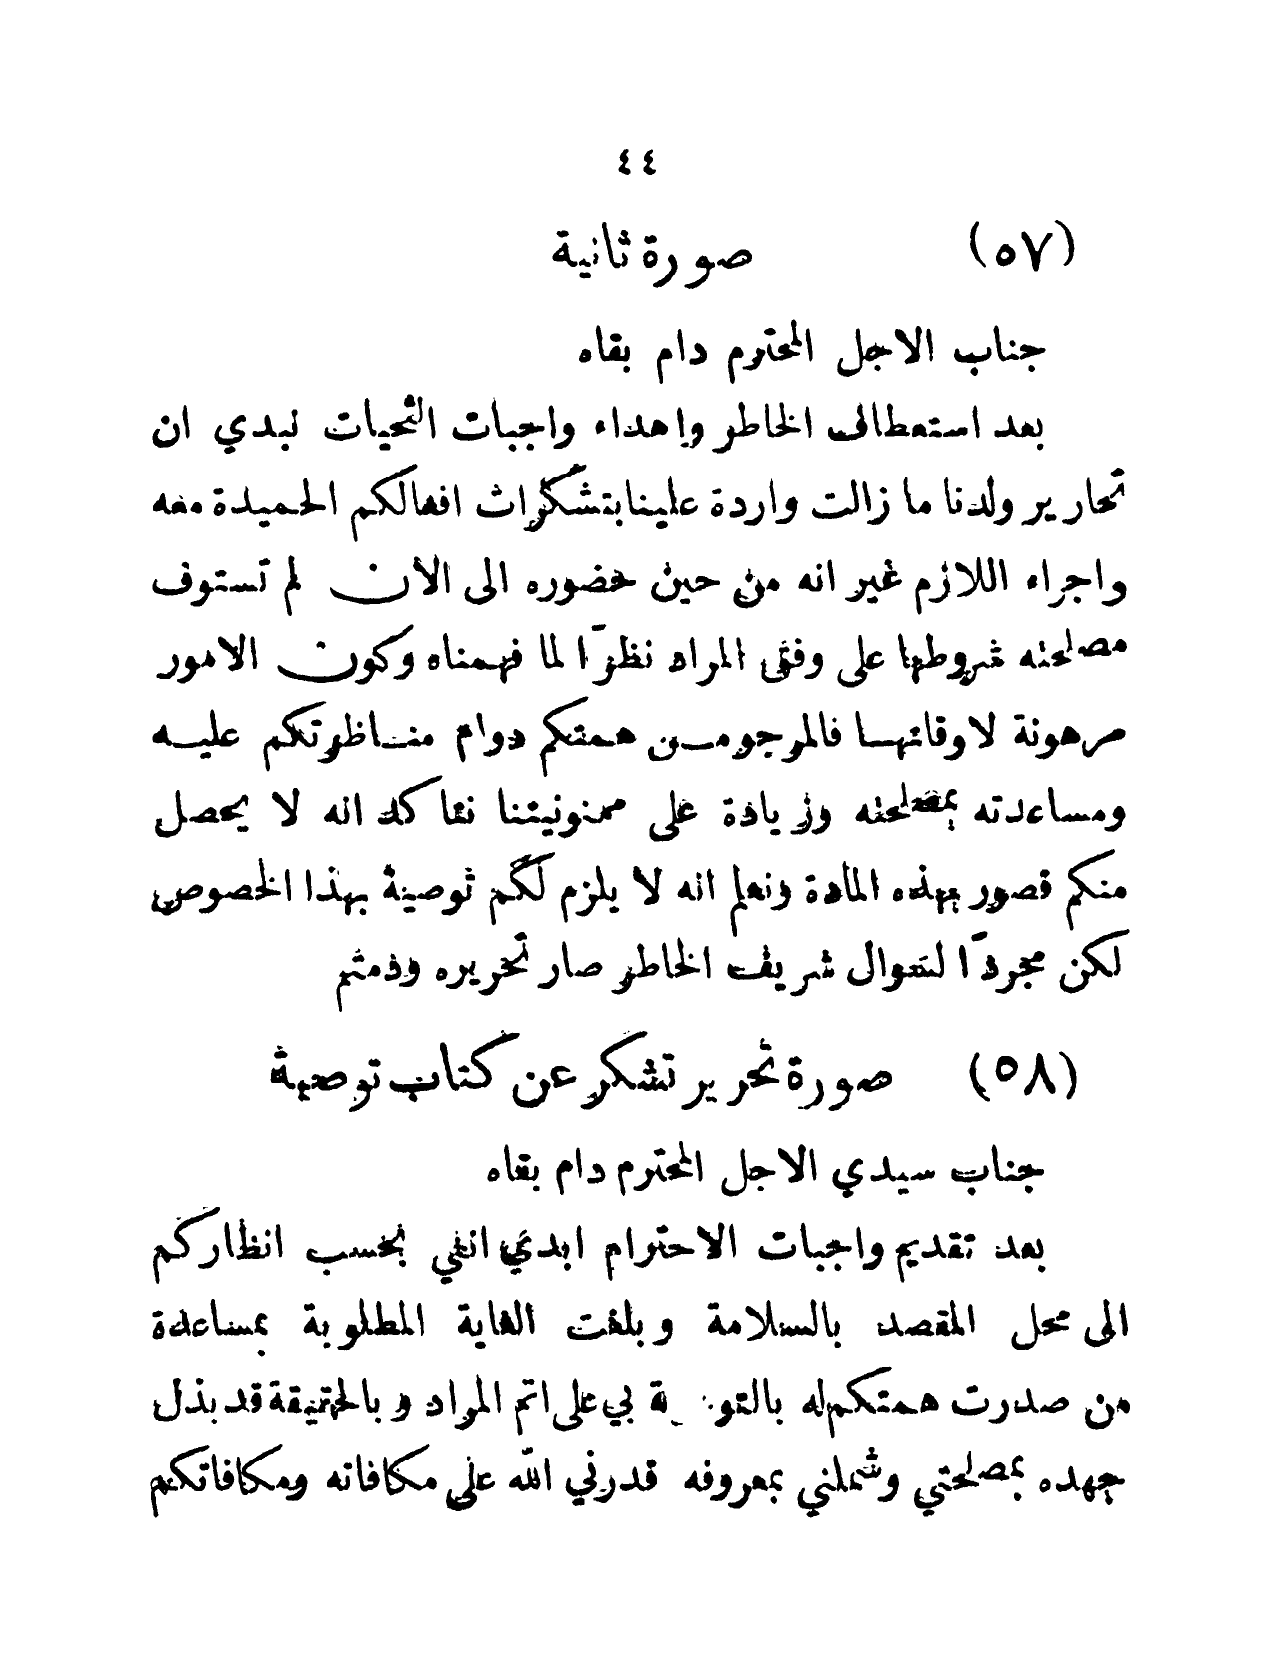 ٤٤
(٥٧) صورة ثانية
جناب الاجل المحترم دام بقاه
بعد استعطاف الخاطر واهداء واجبات التحيات نبدي ان
تحارير ولدنا ما زالت واردة علينا بتشكرات افعالكم الحميدة معه
واجراء اللازم غير انه من حين حضوره الى الآن لم تستوف
مصلحته شروطها على وفق المراد نظرًا لما فهمناه وكون الامور
مرهونة لاوقاتها فالمرجو من همتكم دوام مناظرتكم عليه
ومساعدته بمصلحته وزيادة على ممنونيتنا نتاكد انه لا يحصل
منكم قصور بهذه المادة ونعلم انه لا يلزم لكم توصية بهذا الخصوص
لكن مجردًا لسوال شريف الخاطر صار تحريره ودمتم
(٥٨) صورة تحرير تشكر عن كتاب توصية
جناب سيدي الاجل المحترم دام بقاه
بعد تقديم واجبات الاحترام ابدي انني بحسب انظاركم
الى محل المقصد بالسلامة وبلغت الغاية المطلوبة بمساعدة
من صدرت همتكم له بي على اتم المراد وبالحقيقة قد بذل
جهده بمصلحتي وشملني بمعروفه قدرني الله على مكافاته ومكافاتكم